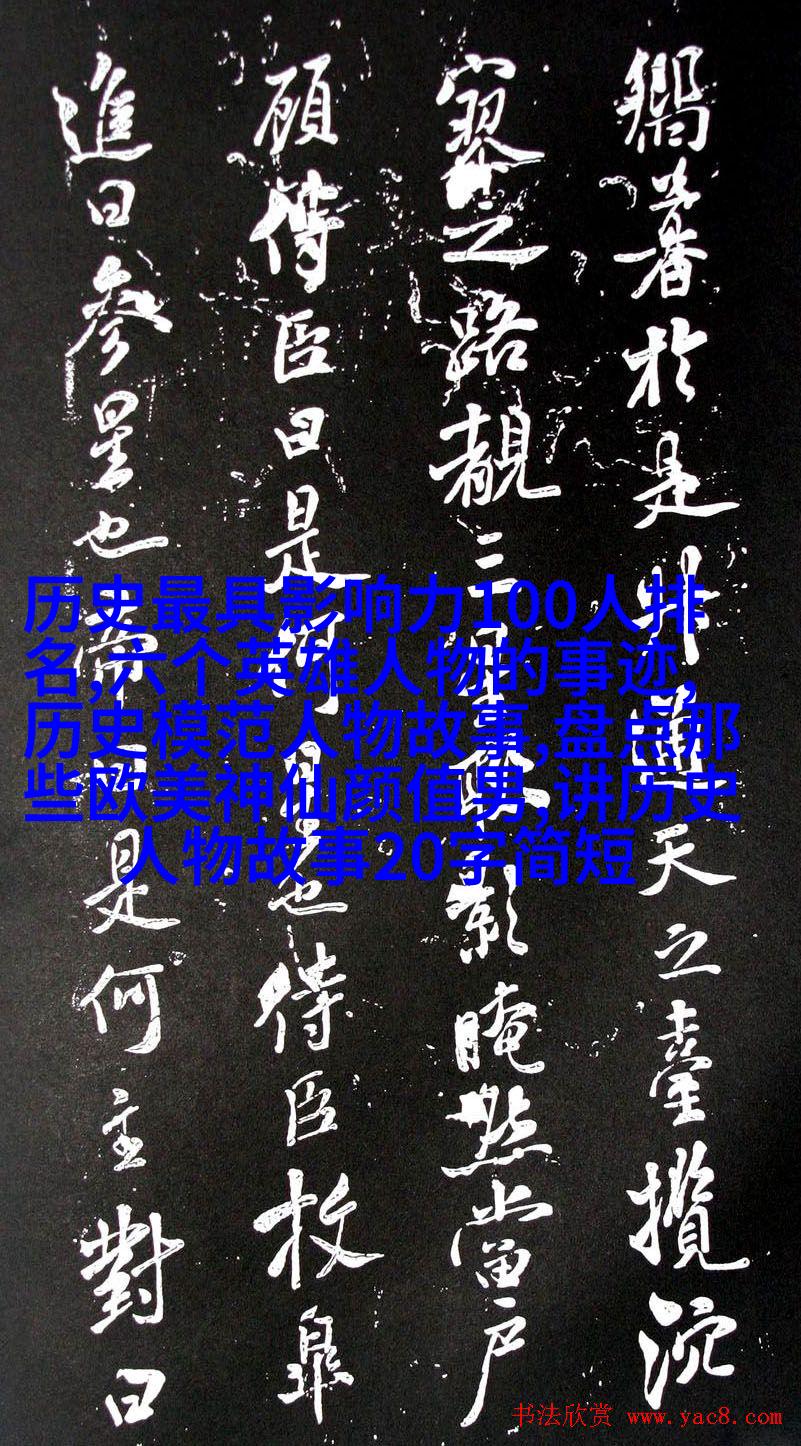 於是升通天之臺攬沉
寥之路覩三星影晻然當戶
顧侍臣曰是何星也侍臣枚皋
進曰參星也帝曰是何主對曰
历史最具影响力100人排
名,六个英雄人物的事迹,
历史模范人物故事,盘点那
些欧美神仙颜值男,讲历史
人物故事20字简短
书法欣赏 www.yac8.com